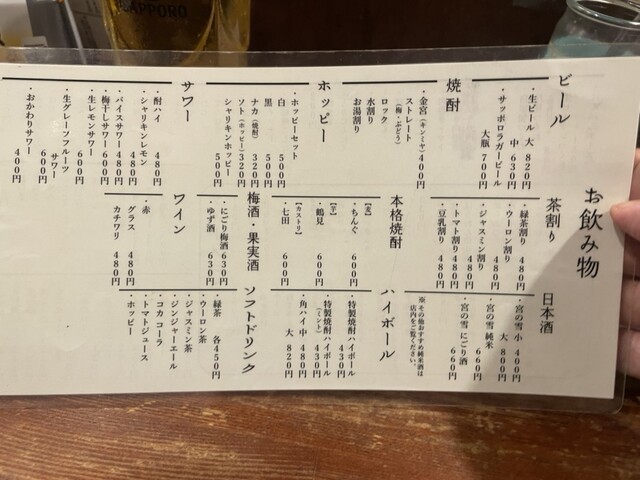 SAPPORO
お飲み物
ビール
・生ビール 大 820円
中 630円
・サッポロラガービール
大瓶 700円
焼酎
・金宮(キンミヤ) 400円
(梅・ぶどう)
ストレート
ロック
水割り
お湯割り
ホッピー
・ホッピーセット
白 500円
黒 500円
ナカ(焼酎) 320円
ソト(ホッピー) 320円
シャリキンホッピー
500円
サワー
・酎ハイ 480円
・シャリキンレモン
480円
・バイスサワー 480円
・梅干しサワー 600円
・生レモンサワー
600円
・生グレープフルーツ
サワー 600円
・おかわりサワー
400円
茶割り
・緑茶割り 480円
・ウーロン割り
480円
・ジャスミン割り
480円
・トマト割り 480円
・豆乳割り 480円
本格焼酎
【麦】
・ちんぐ 600円
【芋】
・鶴見 600円
【カストリ】
・七田 600円
梅酒・果実酒
・にごり梅酒 630円
・ゆず酒 630円
ワイン
・赤
グラス 480円
カチワリ 480円
日本酒
・宮の雪 小 400円
大 800円
・宮の雪 純米
660円
・宮の雪 にごり酒
660円
※その他おすすめ純米酒は
店内をご覧ください。
ハイボール
・特製焼酎ハイボール
430円
・特製焼酎ハイボール
(ミント) 430円
・角ハイ 中 480円
大 820円
ソフトドリンク
・緑茶 各450円
・ウーロン茶
・ジャスミン茶
・ジンジャーエール
・コカ コーラ
・トマトジュース
・ホッピー